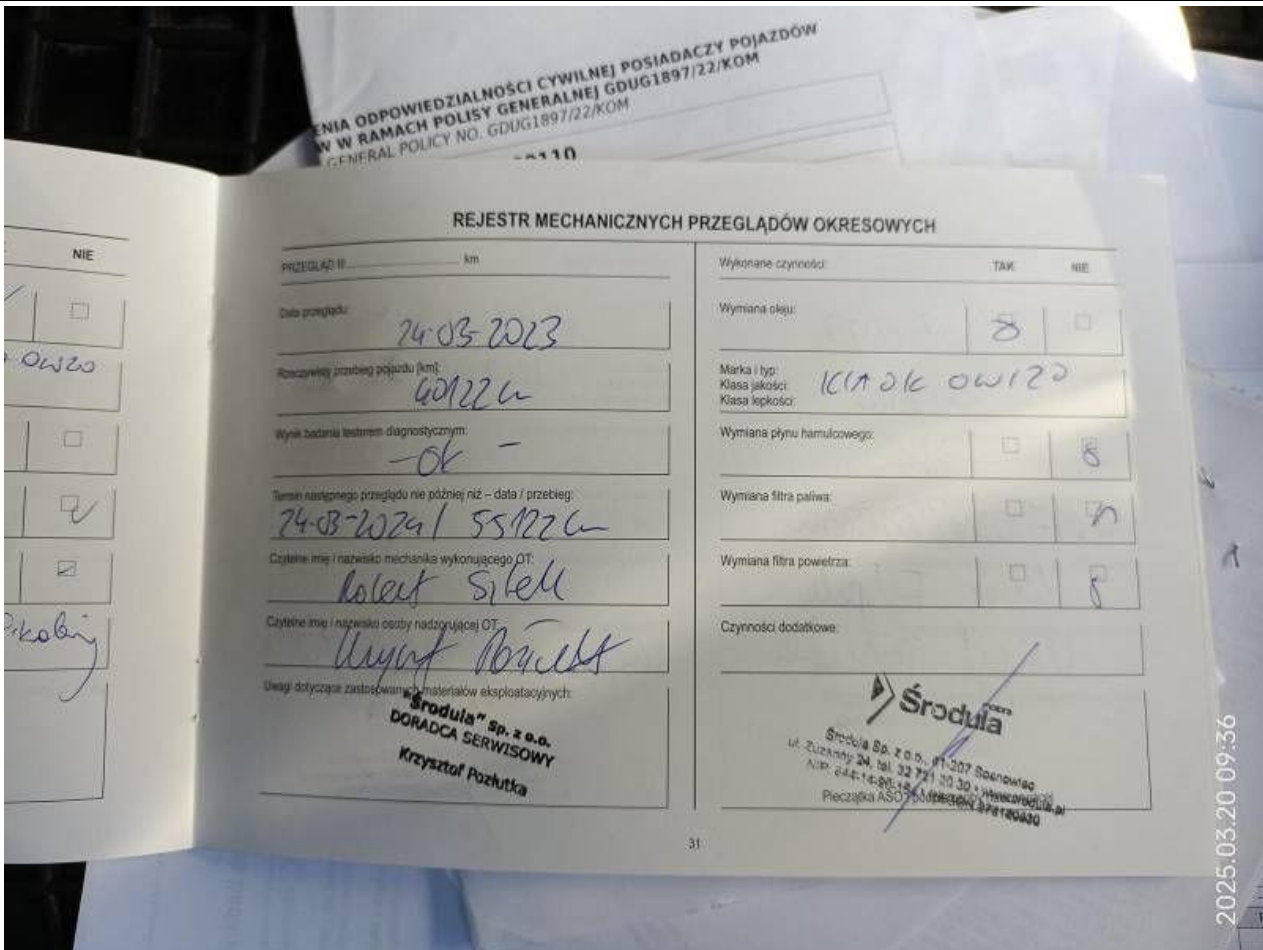 ENIA ODPOWIEDZIALNOŚCI CYWILNEJ POSIADACZY POJAZDÓW
W W RAMACH POLISY GENERALNEJ GDUG1897/22/KOM
GENERAL POLICY NO. GDUG1897/22/KOM
REJESTR MECHANICZNYCH PRZEGLĄDÓW OKRESOWYCH
NIE
OW20
PRZEGLĄD III km
Data przeglądu:
24-03-2023
Rzeczywisty przebieg pojazdu [km]:
40122
Wynik badania testerem diagnostycznym:
- OK -
Termin następnego przeglądu nie później niż – data / przebieg:
24-03-2024 / 55122
Czytelne imię i nazwisko mechanika wykonującego OT:
Robert
Czytelne imię i nazwisko osoby nadzorującej OT:
Uwagi dotyczące zastosowanych materiałów eksploatacyjnych:
"Środula" Sp. z o.o.
DORADCA SERWISOWY
Krzysztof Pozłutka
Wykonane czynności: TAK NIE
Wymiana oleju:
Marka i typ:
Klasa jakości:
Klasa lepkości:
Wymiana płynu hamulcowego:
Wymiana filtra paliwa:
Wymiana filtra powietrza:
Czynności dodatkowe:
Środula
Środula Sp. z o.o., 41-207 Sosnowiec
ul. Zuzanny 24, tel. 32 721 20 30 • www.srodula.pl
Pieczątka ASO
31
2025.03.20 09:36